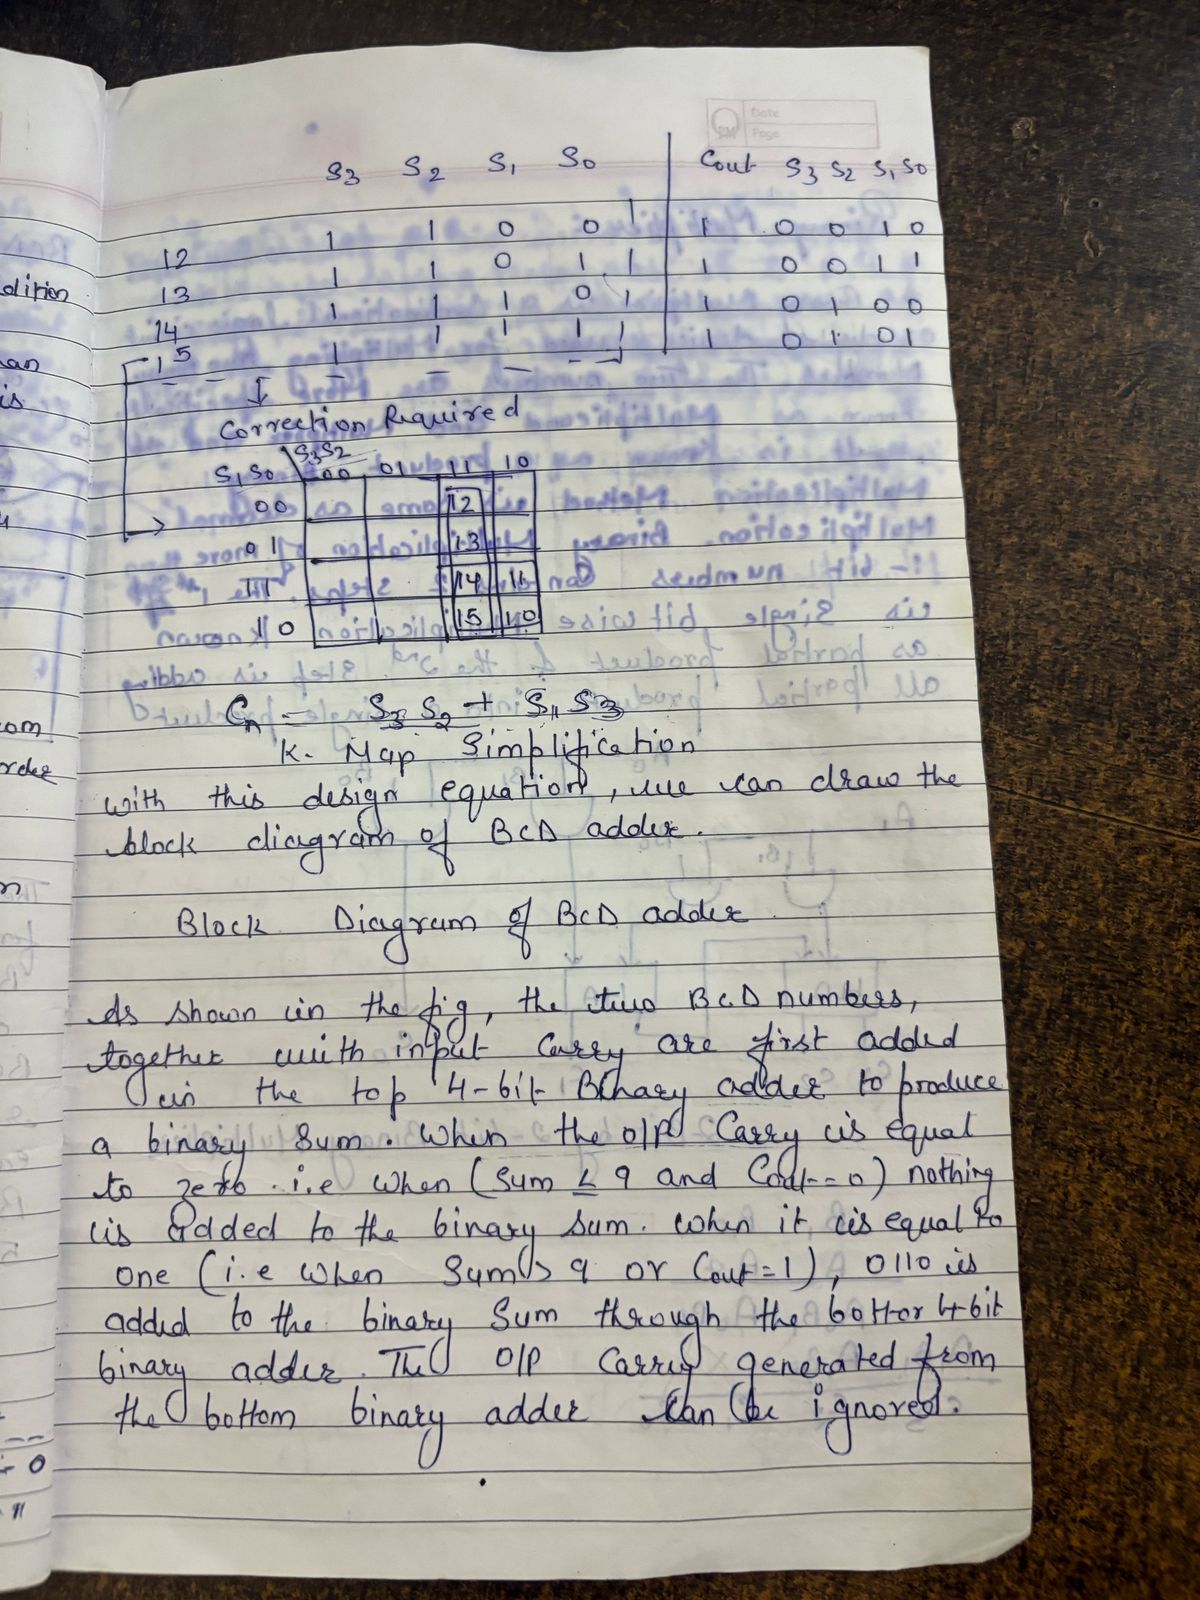 Date
Page
S3 S2 S1 S0 Cout S3 S2 S1 S0
12 1 1 0 0 1 0 0 1 0
13 1 1 0 1 1 0 0 1 1
14 1 1 1 0 1 0 1 0 0
15 1 1 1 1 1 0 1 0 1
Correction Required
S1S0 S3S2 00 01 11 10
00 12
01 13
11 14 11
10 15 10
Cn = S3 S2 + S1 S3
K-Map Simplification
with this design equation, we can draw the
block diagram of BCD adder.
Block Diagram of BCD adder
As shown in the fig, the two BCD numbers,
together with input carry are first added
in the top 4-bit Binary adder to produce
a binary sum. When the O/P Carry is equal
to zero i.e when (sum ≤ 9 and Cout = 0) nothing
is added to the binary sum. when it is equal to
one (i.e when Sum > 9 or Cout = 1), 0110 is
added to the binary Sum through the bottor 4-bit
binary adder. The O/P Carry generated from
the bottom binary adder can be ignored.
dition
an
is
om
order
n
0